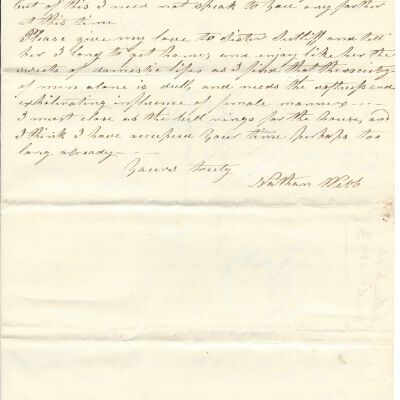 but of this I need not speak to you any farther
at this time
Please give my love to Sister Shirliff and tell
her I long to get home, and enjoy like her the
sweets of domestic life, as I find that the society
of men alone is dull, and needs the softness and
exhilirating influence of female manners ---
I must close as the bell rings for the house, and
I think I have occupied your time perhaps too
long already --
Yours truly
Nathan Webb